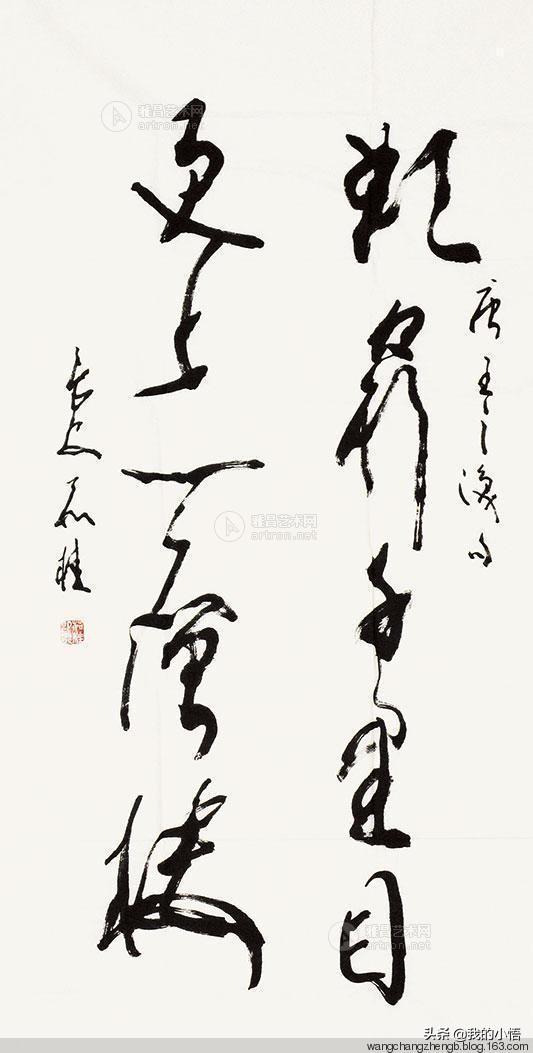 欲窮千里目
唐王之渙句
更上一層樓
長安茹桂
雅昌艺术网
artron.net
雅昌艺术网
artron.net
雅昌艺术网
artron.net
头条 @我的小悟
wangchangzhengb.blog.163.com